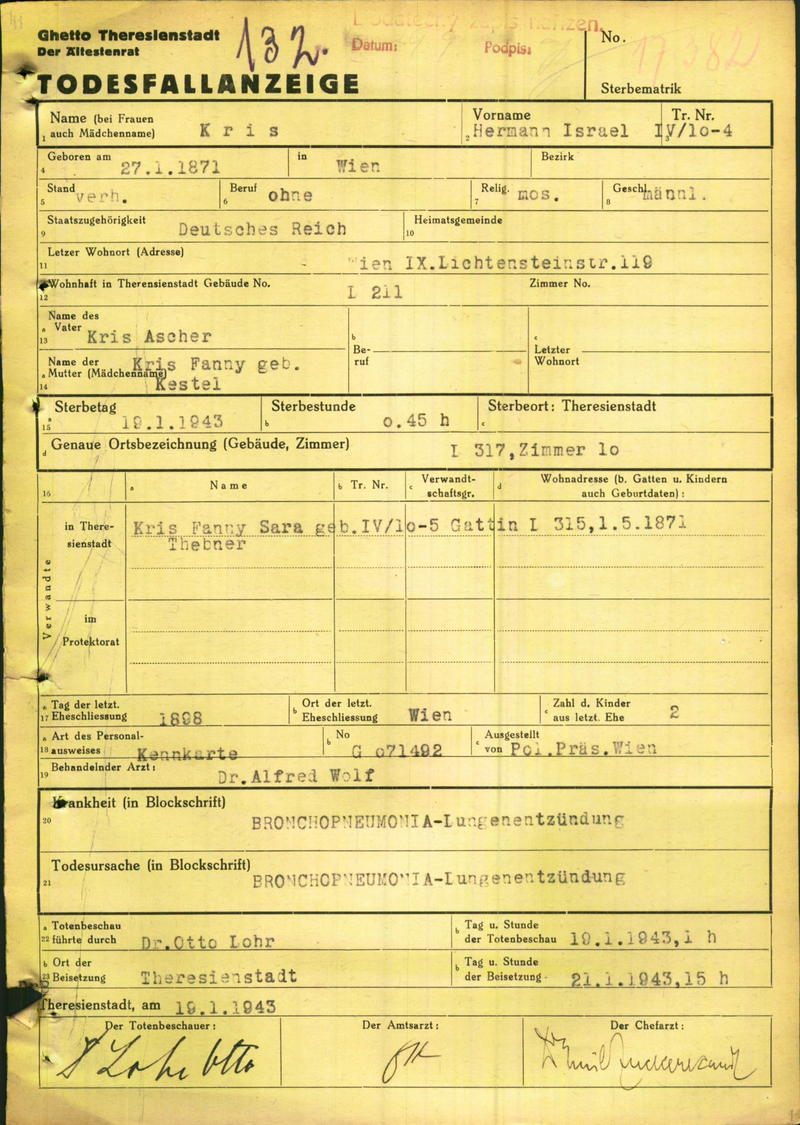 Ghetto Theresienstadt
Der Ältestenrat
132.
Datum:
Podpis:
No.
17382
TODESFALLANZEIGE
Sterbematrik
Name (bei Frauen
1 auch Mädchenname)
Kris
Vorname
2 Hermann Israel
Tr. Nr.
3 IV/10-4
Geboren am
4 27.1.1871
in
Wien
Bezirk
Stand
5 verh.
Beruf
6 ohne
Relig.
7 mos.
Geschl.
8 männl.
Staatszugehörigkeit
9 Deutsches Reich
Heimatsgemeinde
10
Letzer Wohnort (Adresse)
11 Wien IX.Lichtensteinstr.119
Wohnhaft in Theresienstadt Gebäude No.
12 L 211
Zimmer No.
Name des
a Vater
13 Kris Ascher
Name der
a Mutter (Mädchenname)
14 Kris Fanny geb.
Kestel
b
Be-
ruf
c
Letzter
Wohnort
Sterbetag
15 a 19.1.1943
Sterbestunde
b 0.45 h
Sterbeort: Theresienstadt
c
Genaue Ortsbezeichnung (Gebäude, Zimmer)
d L 317,Zimmer 10
16
a Name
b Tr. Nr.
c Verwandt-
schaftsgr.
d Wohnadresse (b. Gatten u. Kindern
auch Geburtdaten):
Verwandte
in There-
sienstadt
Kris Fanny Sara geb.IV/10-5 Gattin L 315,1.5.1871
Thebner
im
Protektorat
a Tag der letzt.
17 Eheschliessung
1898
b Ort der letzt.
Eheschliessung
Wien
c Zahl d. Kinder
aus letzt. Ehe
2
a Art des Personal-
18 ausweises
Kennkarte
b No
G 071492
c Ausgestellt
von Pol.Präs.Wien
Behandelnder Arzt:
19 Dr.Alfred Wolf
Krankheit (in Blockschrift)
20 BRONCHOPNEUMONIA-Lungenentzündung
Todesursache (in Blockschrift)
21 BRONCHOPNEUMONIA-Lungenentzündung
a Totenbeschau
22 führte durch
Dr.Otto Lohr
b Tag u. Stunde
der Totenbeschau
19.1.1943,1 h
b Ort der
23 Beisetzung
Theresienstadt
b Tag u. Stunde
der Beisetzung
21.1.1943,15 h
Theresienstadt, am 19.1.1943
Der Totenbeschauer:
Der Amtsarzt:
Der Chefarzt: